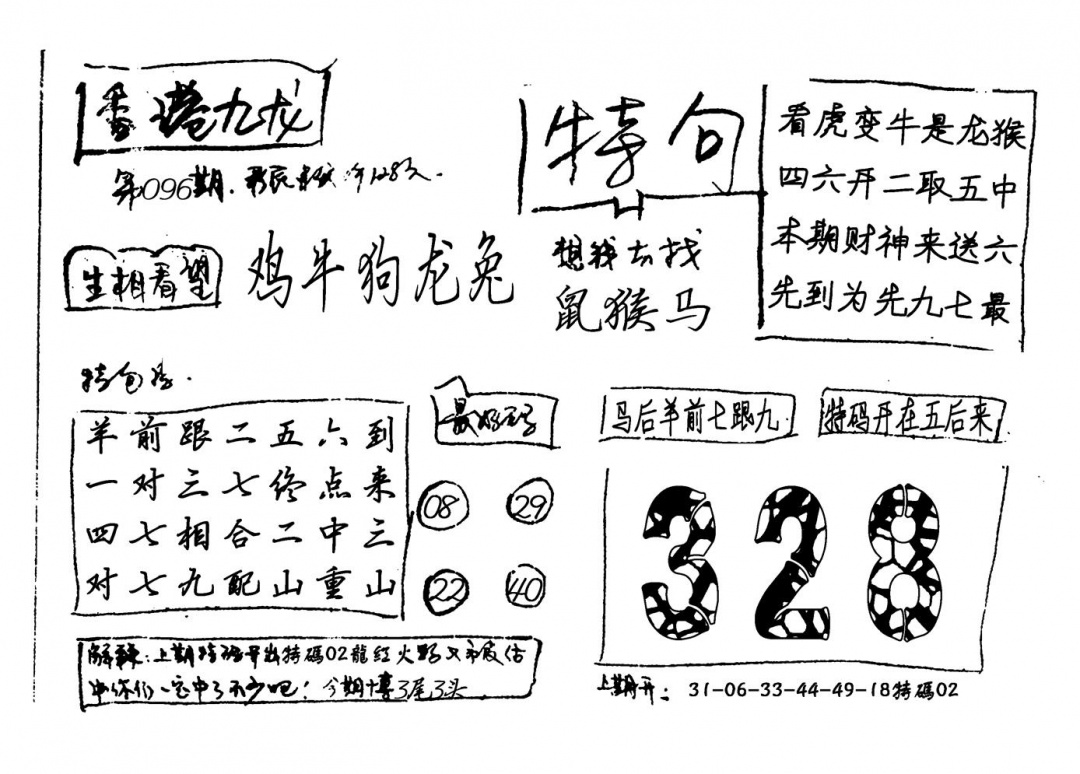 香港九龙
第096期.
特句
看虎变牛是龙猴
四六开二取五中
本期财神来送六
先到为先九七最
生相看望
鸡牛狗龙兔
想我去找
鼠猴马
羊前跟二五六到
一对三七终点来
四七相合二中三
对七九配山重山
08
29
22
40
马后羊前七跟九
特码开在五后来
328
解释:上期特码开出特碼02龍红火
中你们一定中了不少吧!今期博3尾3头
上期开:31-06-33-44-49-18特碼02